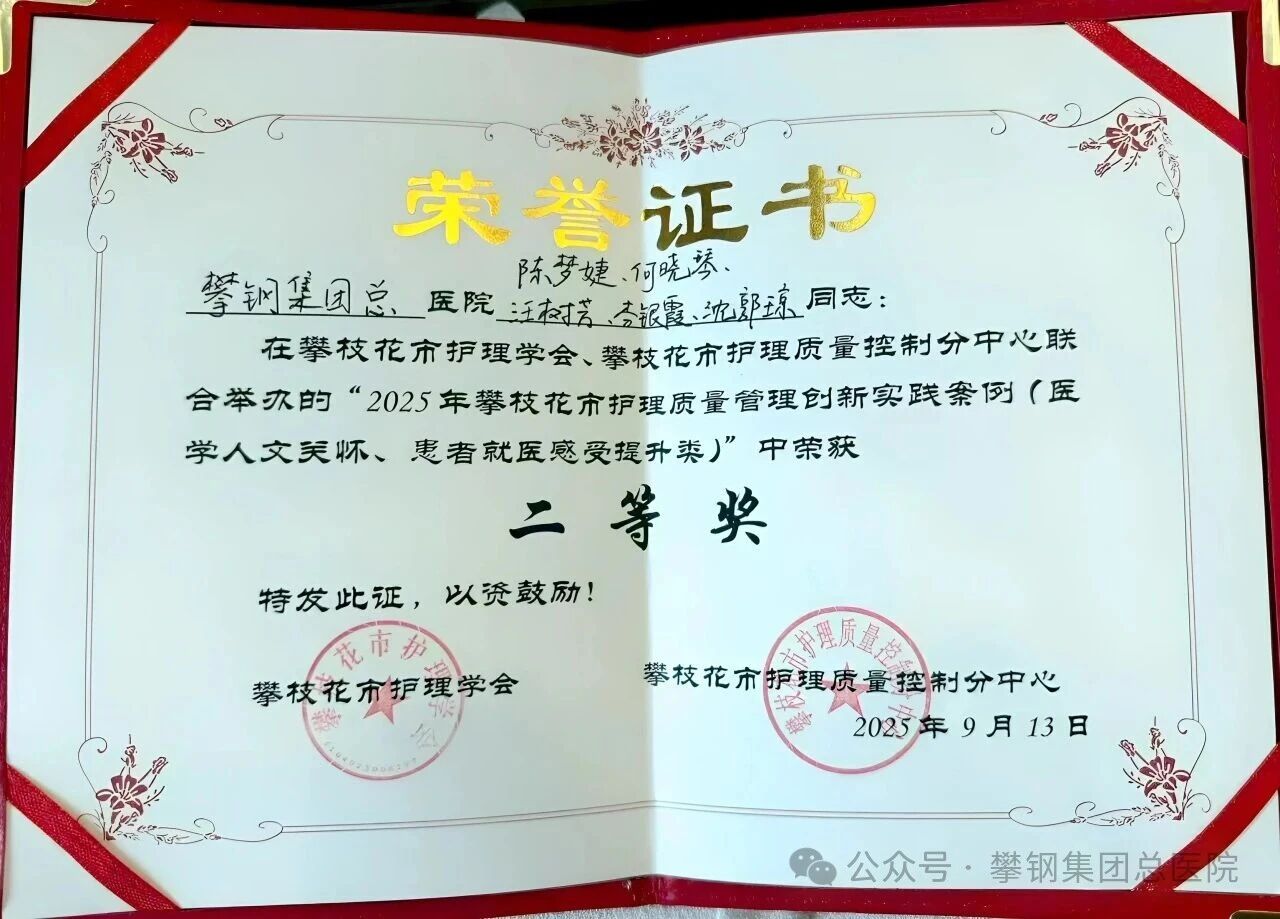 荣誉证书
陈梦婕、何晓琴、
攀钢集团总医院汪树芳、李银霞、沈郭琼同志：
在攀枝花市护理学会、攀枝花市护理质量控制分中心联
合举办的“2025年攀枝花市护理质量管理创新实践案例（医
学人文关怀、患者就医感受提升类）”中荣获
二等奖
特发此证，以资鼓励！
攀枝花市护理学会
攀枝花市护理学会
攀枝花市护理质量控制分中心
攀枝花市护理质量控制分中心
2025年9月13日
公众号·攀钢集团总医院